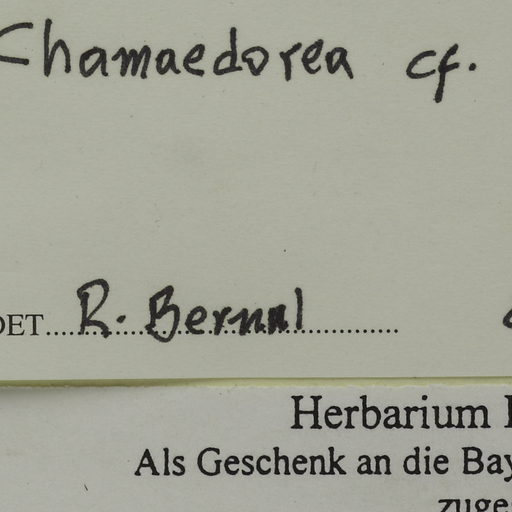 Chamaedorea cf.
DET.... R. Bernal ............
Herbarium
Als Geschenk an die Bay
zuge